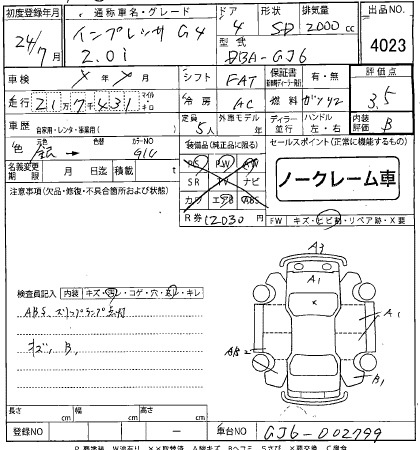 初度登録年月 通称車名・グレード ドア 形状 排気量 出品NO
24/7 インプレッサ G4 4 SD 2000 cc
2.0i 型式 4023
DBA-GJ6
車検 シフト FAT 保証書 有・無 評価点
走行 21万7千431 マイル キロ 冷房 AC 燃料 ガソリン 3.5
車歴 自家用・レンタ・事業用( ) 定員 5人 外車モデル 年 ディーラー 並行 ハンドル 左・右 内装評価 B
色 元色 銀 色替 カラーNO G1U 装備品(純正品に限る) セールスポイント(正常に機能するもの)
PS PW
名義変更期限 月 日迄 積載量 t SR TV ナビ ノークレーム車
注意事項(欠品・修復・不具合箇所および状態) カワ エアB ABS
R券 12030円 FW キズ・ヒビ割・リペア跡・X要
A3
A1
検査員記入 内装 キズ・汚レ・コゲ・穴・スレ・キレ
ABS スリップランプ点灯 A1
キズ、B、 AB2
B1
長さ cm 幅 cm 高さ cm
登録NO 車台NO GJ6-002799